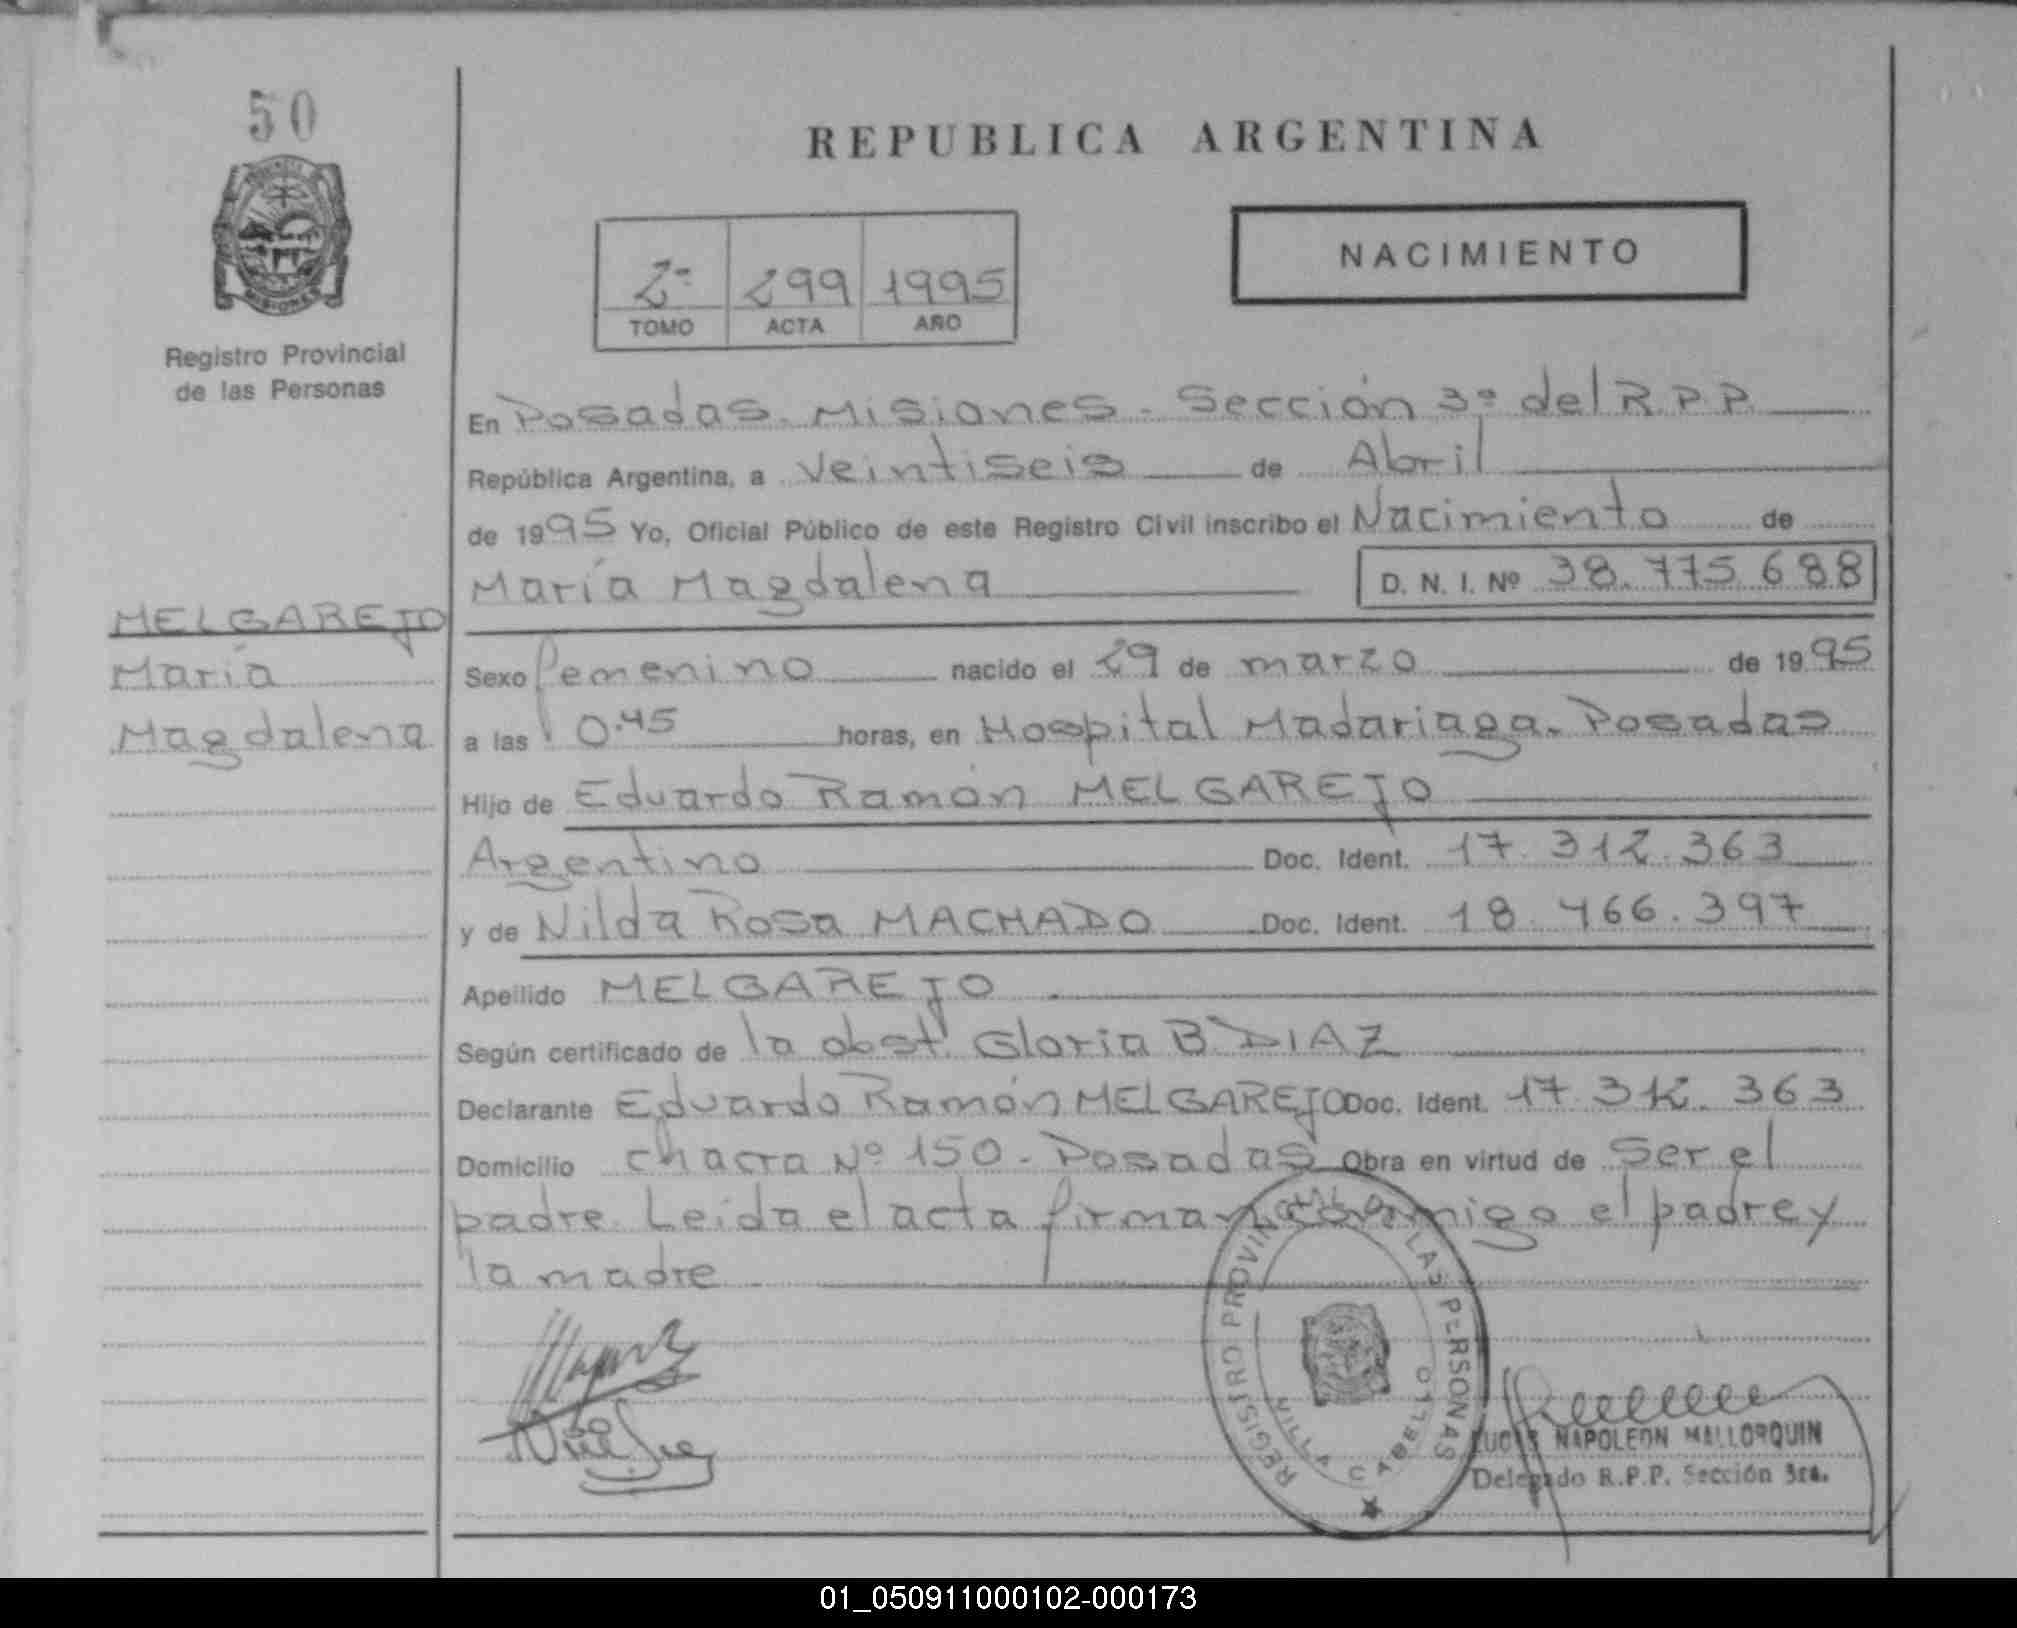 50
PROVINCIA
MISIONES
Registro Provincial
de las Personas
REPUBLICA ARGENTINA
2º 299 1995
TOMO ACTA AÑO
NACIMIENTO
En Posadas. Misiones. Sección 3º del R.P.P.
República Argentina, a veintiseis de Abril
de 1995 Yo, Oficial Público de este Registro Civil inscribo el Nacimiento de
María Magdalena D. N. I. Nº 38.775.688
MELGAREJO
María
Magdalena
Sexo femenino nacido el 29 de marzo de 1995
a las 0.45 horas, en Hospital Madariaga. Posadas
Hijo de Eduardo Ramón MELGAREJO
Argentino Doc. Ident. 17.312.363
y de Nilda Rosa MACHADO Doc. Ident. 18.466.397
Apellido MELGAREJO
Según certificado de la obst. Gloria B. DIAZ
Declarante Eduardo Ramón MELGAREJO Doc. Ident. 17.312.363
Domicilio chacra Nº 150 - Posadas Obra en virtud de ser el
padre. Leida el acta firman conmigo el padre y
la madre
REGISTRO PROVINCIAL DE LAS PERSONAS
VILLA CABELLO
LUCAS NAPOLEON MALLORQUIN
Delegado R.P.P. Sección 3ra.
01_050911000102-000173